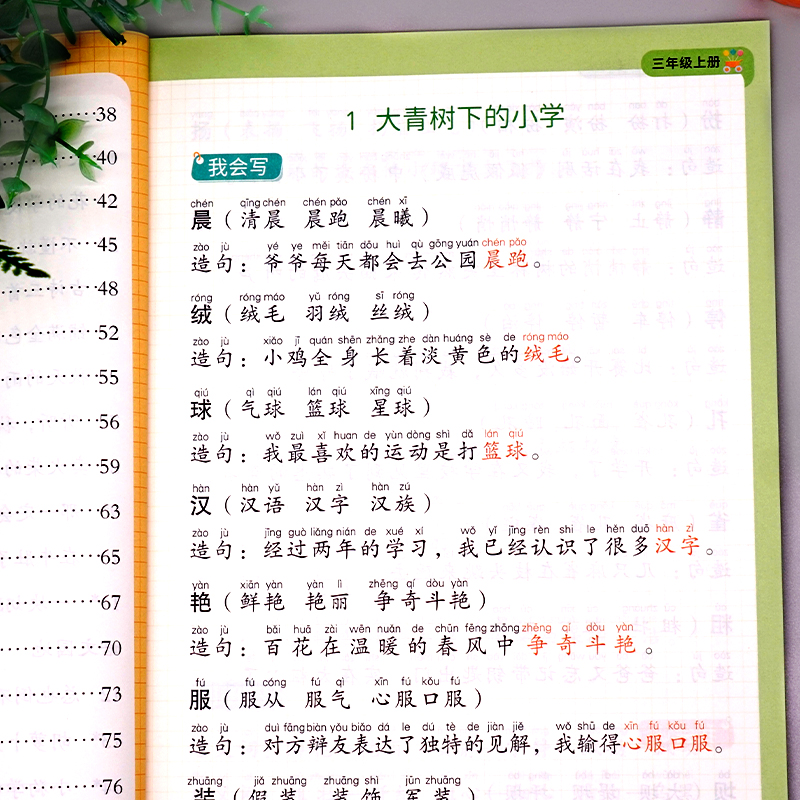 38
40
42
45
48
52
55
56
59
63
65
67
70
73
75
76
三年级上册
1 大青树下的小学
我会写
chén qīng chén chén pǎo chén xī
晨（清晨 晨跑 晨曦）
zào jù yé ye měi tiān dōu huì qù gōng yuán chén pǎo
造句：爷爷每天都会去公园晨跑。
róng róng máo yǔ róng sī róng
绒（绒毛 羽绒 丝绒）
zào jù xiǎo jī quán shēn zhǎng zhe dàn huáng sè de róng máo
造句：小鸡全身长着淡黄色的绒毛。
qiú qì qiú lán qiú xīng qiú
球（气球 篮球 星球）
zào jù wǒ zuì xǐ huan de yùn dòng shì dǎ lán qiú
造句：我最喜欢的运动是打篮球。
hàn hàn yǔ hàn zì hàn zú
汉（汉语 汉字 汉族）
zào jù jīng guò liǎng nián de xué xí wǒ yǐ jīng rèn shi le hěn duō hàn zì
造句：经过两年的学习，我已经认识了很多汉字。
yàn xiān yàn yàn lì zhēng qí dòu yàn
艳（鲜艳 艳丽 争奇斗艳）
zào jù bǎi huā zài wēn nuǎn de chūn fēng zhōng zhēng qí dòu yàn
造句：百花在温暖的春风中争奇斗艳。
fú fú cóng fú qì xīn fú kǒu fú
服（服从 服气 心服口服）
zào jù duì fāng biàn yǒu biǎo dá le dú tè de jiàn jiě wǒ shū de xīn fú kǒu fú
造句：对方辩友表达了独特的见解，我输得心服口服。
zhuāng jiǎ zhuāng zhuāng shì jūn zhuāng
装（假装 装饰 军装）